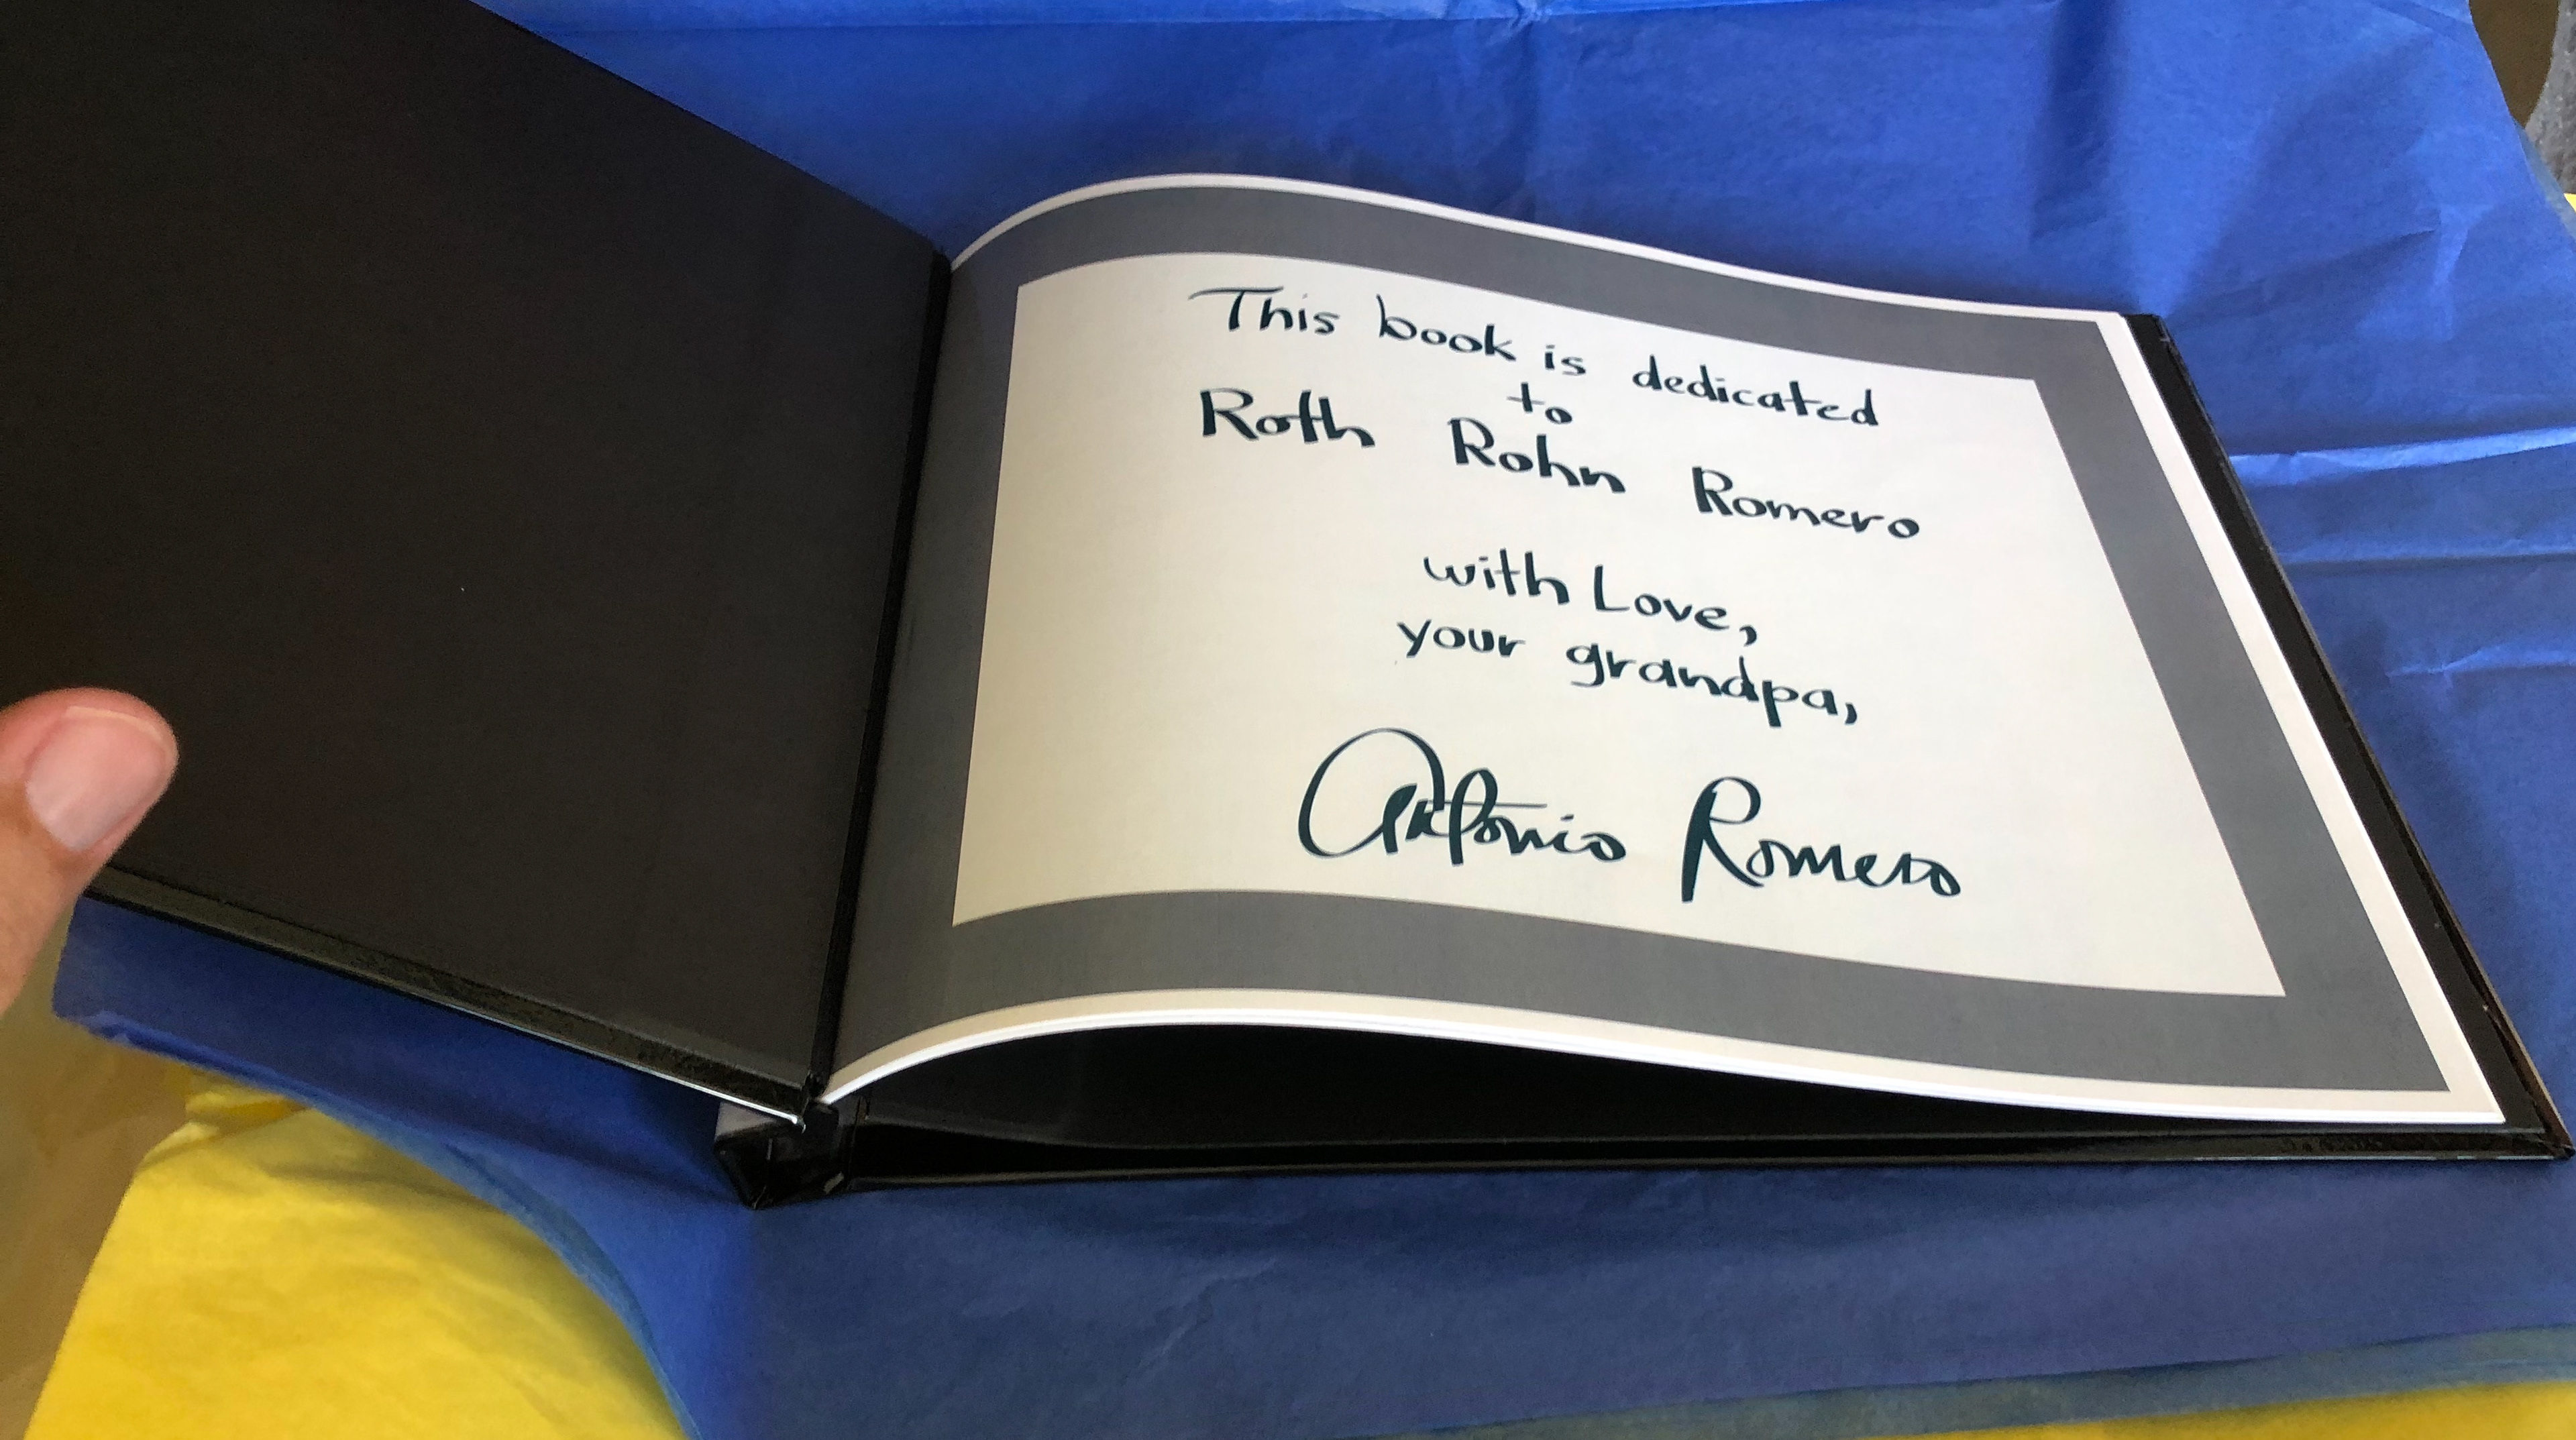 This book is dedicated
to
Roth Rohn Romero
with Love,
your grandpa,
Antonio Romero